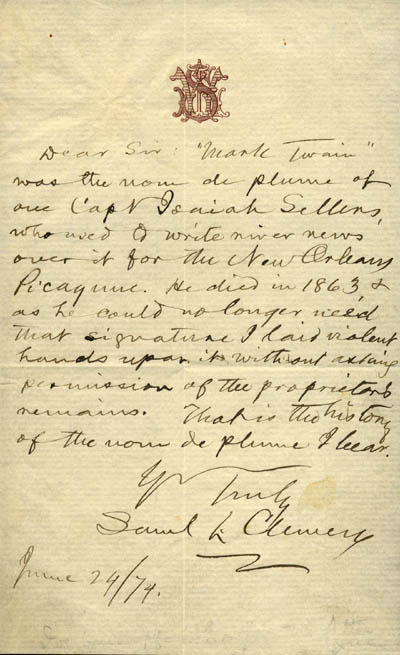 Dear Sir: "Mark Twain"
was the nom de plume of
one Capt Isaiah Sellers,
who used to write river news
over it for the New Orleans
Picayune. He died in 1863 &
as he could no longer need
that signature I laid violent
hands upon it without asking
permission of the proprietor's
remains. That is the history
of the nom de plume I bear.
Yrs Truly
Saml L. Clemens
June 24/74.